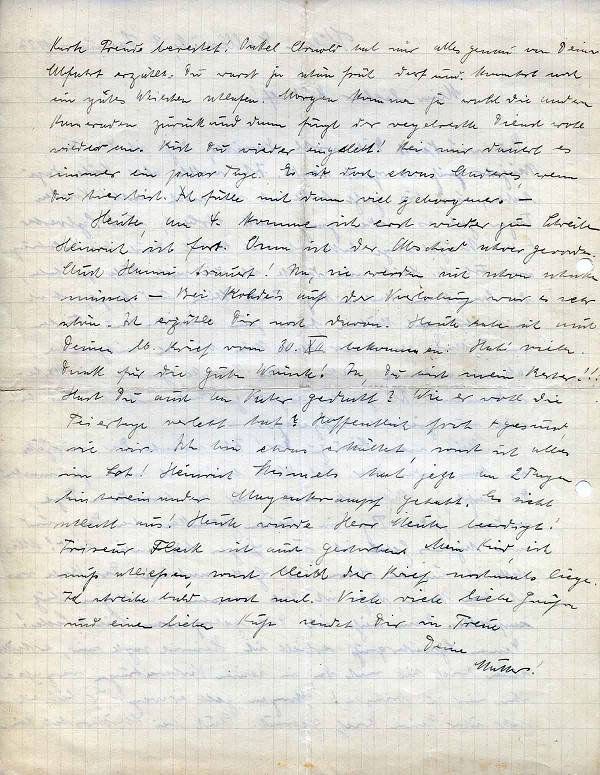 Freude bereitet! Onkel Arnold hat mir alles genau von Deiner
Abfahrt erzählt. Du warst ja schon früh dort und konntest noch
ein gutes Weilchen schlafen. Morgen kommen ja wohl die andern
Kameraden zurück und dann fängt der regelrechte Dienst wohl
wieder an. Bist Du wieder eingelebt? Bei mir dauert es
immer ein paar Tage. Es ist doch etwas Anderes, wenn
Du hier bist. Ich fühle mich dann viel geborgener. –
Heute, am 4. komme ich erst wieder zum Schreiben
Heinrich ist fort. Ihm ist der Abschied schwer geworden.
Auch Hanni trauert! Na, sie werden sich schon schicken
müssen – Bei auf der Verlobung war es sehr
schön. Ich erzähle Dir noch davon. Heute habe ich auch
Deinen lb. Brief vom 30. XII. bekommen. Hab' vielen
Dank für die guten Wünsche! Ja, Du bist mein Bester!!!
Hast Du auch an Vater gedacht? Wie er wohl die
Feiertage verlebt hat? Hoffentlich froh + gesund,
wie wir. Ich bin etwas erkältet, sonst ist alles
im Lot! Heinrich hat jetzt an 2 Tagen
hintereinander Magenkrampf gehabt. Es sieht
schlecht aus! Heute wurde Herr beerdigt!
Friseur Fleck ist auch gestorben. Mein Kind, ich
muß schließen, sonst bleibt der Brief nochmals liegen.
Ich schreibe bald noch mal. Viele viele liebe Grüße
und einen lieben Kuß sendet Dir in Treue
Deine
Mutter!